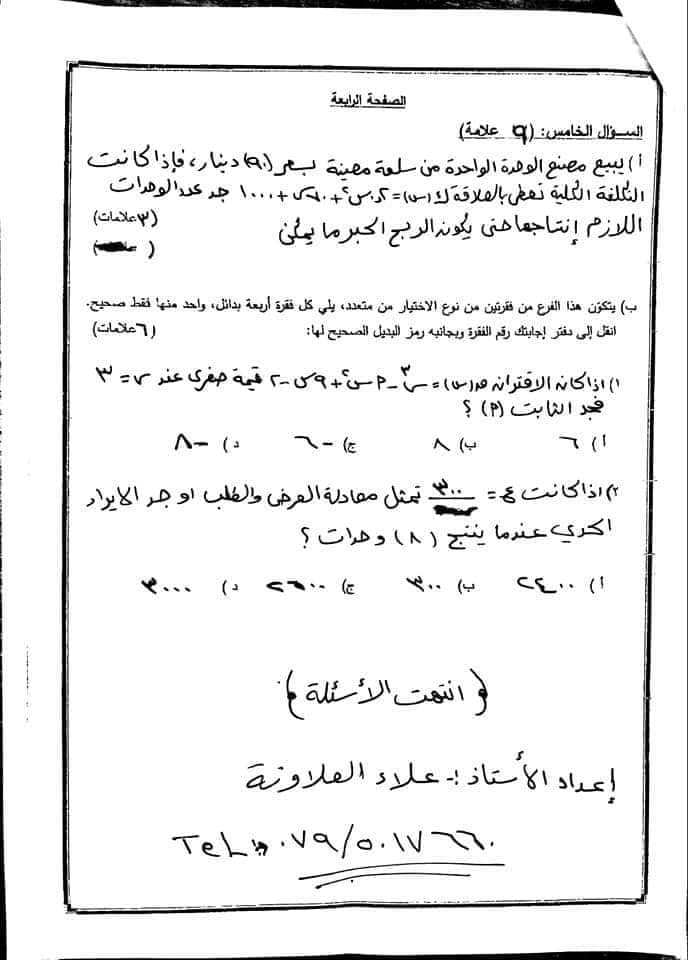 الصفحة الرابعة
السؤال الخامس: (٩ علامة)
أ) يبيع مصنع الوحدة الواحدة من سلعة معينة بسعر (٩٠) دينار، فإذا كانت
التكلفة الكلية تعطى بالعلاقة ك(س) = س٢ + ٦٠س + ١٠٠٠ جد عدد الوحدات
اللازم إنتاجها حتى يكون الربح اكبر ما يمكن (٣ علامات)
ب) يتكون هذا الفرع من فقرتين من نوع الاختيار من متعدد، يلي كل فقرة أربعة بدائل، واحد منها فقط صحيح.
انقل إلى دفتر إجابتك رقم الفقرة وبجانبه رمز البديل الصحيح لها: (٦ علامات)
١) اذا كان الاقتران ق(س) = س٣ - م س٢ + ٩س - ٢ قيمة صغرى عند س = ٣
فجد الثابت (م) ؟
أ) ٦ ب) ٨ ج) -٦ د) -٨
٢) اذا كانت ع = ٣٠٠ تمثل معادلة العرض والطلب اوجد الايراد
الحدي عندما ينتج (٨) وحدات ؟
أ) ٢٤٠٠ ب) ٣٠٠ ج) ٢٦٠٠ د) ٣٠٠٠
﴿ انتهت الأسئلة ﴾
إعداد الأستاذ :- علاء العلاونة
TeL: ٠٧٩/٥٠١٧٦٦٠